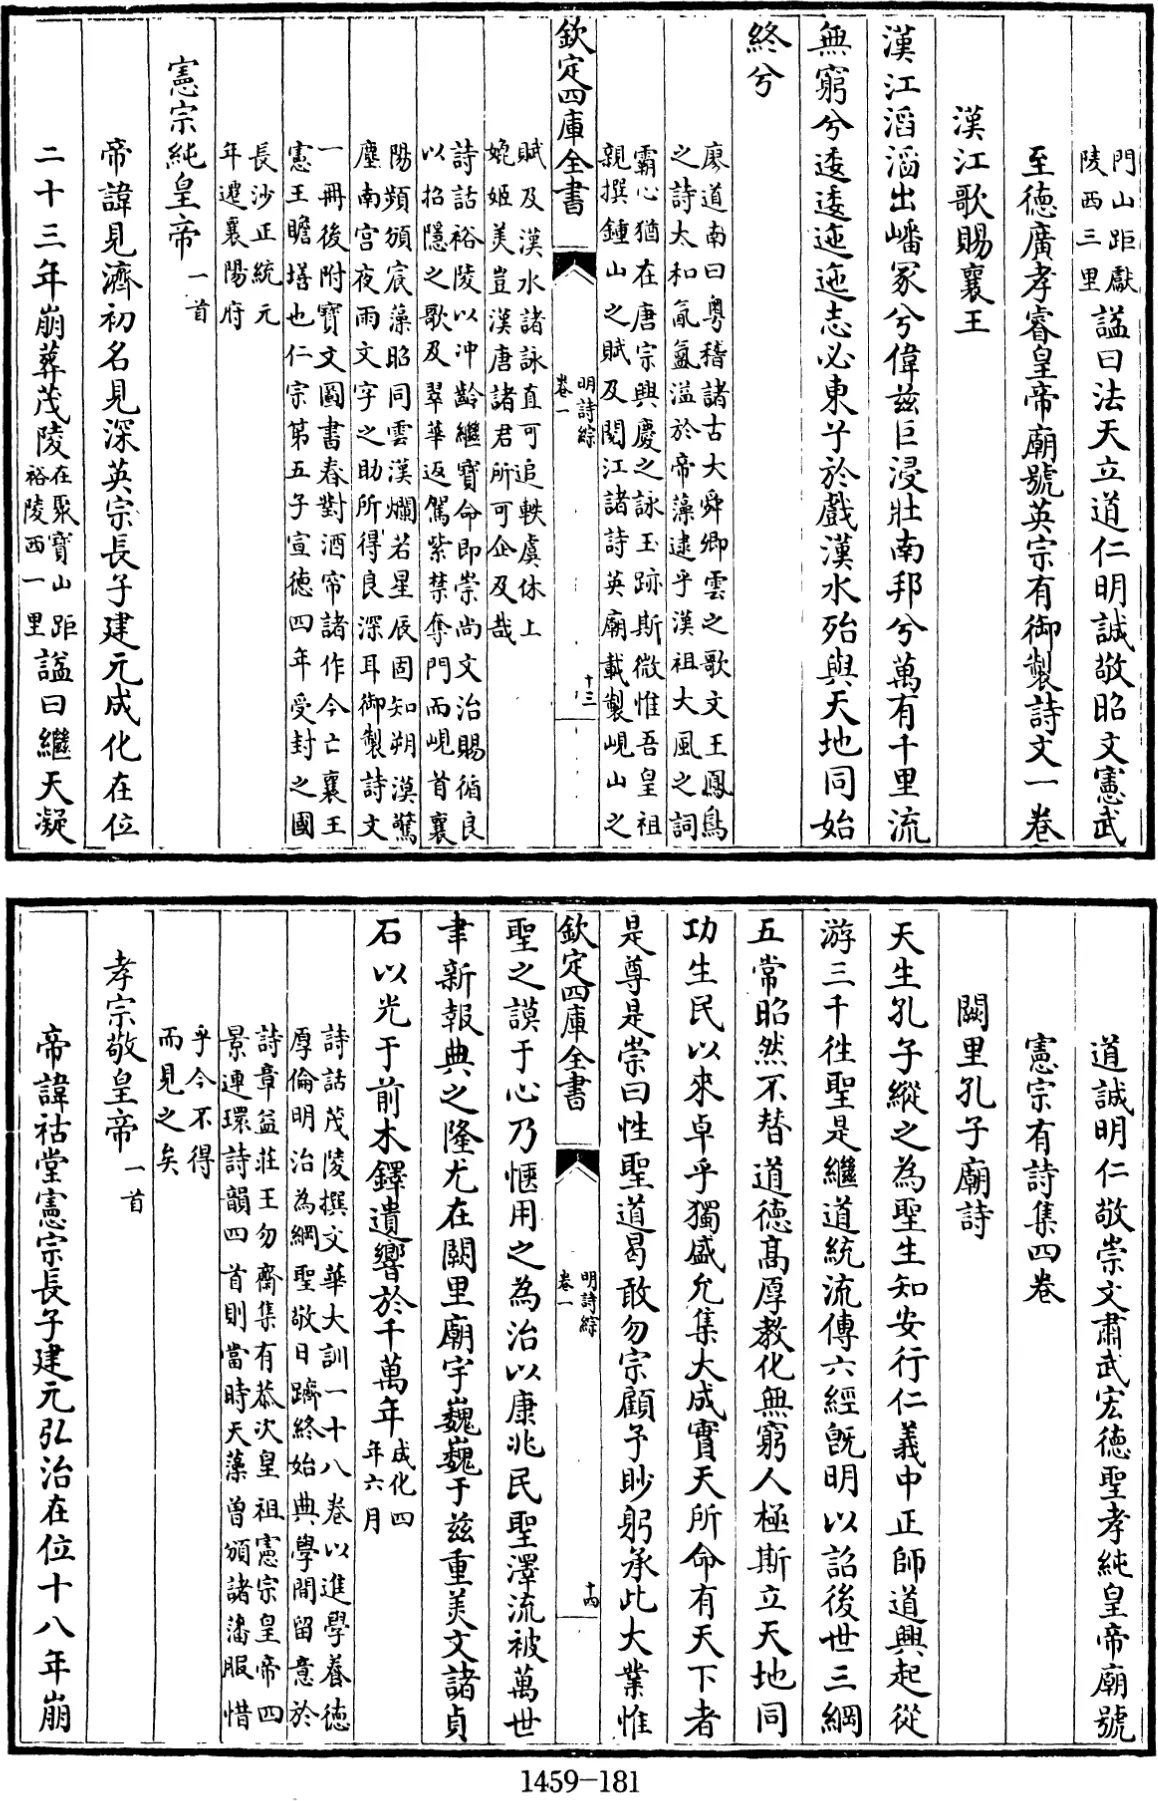 門山距獻
陵西三里
諡曰法天立道仁明誠敬昭文憲武
至德廣孝睿皇帝廟號英宗有御製詩文一卷
漢江歌賜襄王
漢江滔滔出嶓冢兮偉兹巨浸壯南邦兮萬有千里流
無窮兮逶逶迤迤志必東兮於戲漢水殆與天地同始
終兮
廖道南曰粤稽諸古大舜卿雲之歌文王鳳鳥
之詩太和氤氲溢於帝藻逮乎漢祖大風之詞
霸心猶在唐宗興慶之詠玉跡斯微惟吾皇祖
親撰鍾山之賦及閱江諸詩英廟載製峴山之
欽定四庫全書
明詩綜
卷一
十三
賦及漢水諸詠直可追軼虞休上
媲姬美豈漢唐諸君所可企及哉
詩話裕陵以冲齡繼寶命即崇尚文治賜循良
以招隱之歌及翠華返駕紫禁奪門而峴首襄
陽頻頒宸藻昭同雲漢爛若星辰固知朔漠驚
塵南宫夜雨文字之助所得良深耳御製詩文
一冊後附寶文圖書春對酒帘諸作今亡襄王
憲王瞻墡也仁宗第五子宣德四年受封之國
長沙正統元
年遷襄陽府
憲宗純皇帝一首
帝諱見濟初名見深英宗長子建元成化在位
二十三年崩葬茂陵
在聚寶山距
裕陵西一里
諡曰繼天凝
道誠明仁敬崇文肅武宏德聖孝純皇帝廟號
憲宗有詩集四卷
闕里孔子廟詩
天生孔子縱之為聖生知安行仁義中正師道興起從
游三千徃聖是繼道統流傳六經旣明以詔後世三綱
五常昭然不替道德高厚教化無窮人極斯立天地同
功生民以來卓乎獨盛允集大成實天所命有天下者
是尊是崇曰性聖道曷敢勿宗顧予眇躬承此大業惟
欽定四庫全書
明詩綜
卷一
十四
聖之謨于心乃愜用之為治以康兆民聖澤流被萬世
聿新報典之隆尤在闕里廟宇巍巍于兹重美文諸貞
石以光于前木鐸遺響於千萬年
成化四
年六月
詩話茂陵撰文華大訓一十八卷以進學養德
厚倫明治為綱聖敬日躋終始典學間留意於
詩章益莊王勿齋集有恭次皇祖憲宗皇帝四
景連環詩韻四首則當時天藻曾頒諸藩服惜
乎今不得
而見之矣
孝宗敬皇帝一首
帝諱祐堂憲宗長子建元弘治在位十八年崩
1459-181